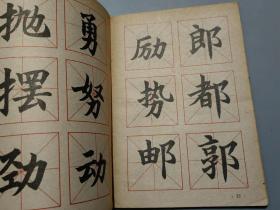 抛 勇
摆 努
劲 动
励 郎
势 都
邮 郭